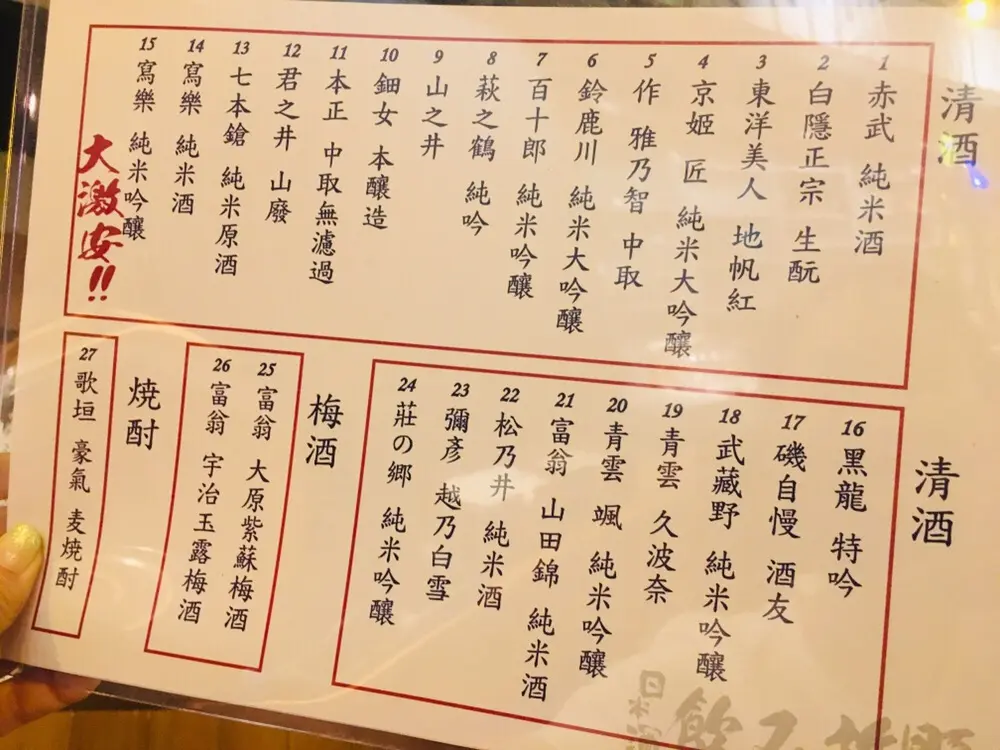 清酒
1 赤武 純米酒
2 白隱正宗 生酛
3 東洋美人 地帆紅
4 京姬 匠 純米大吟釀
5 作 雅乃智 中取
6 鈴鹿川 純米大吟釀
7 百十郎 純米吟釀
8 萩之鶴 純吟
9 山之井
10 鈿女 本釀造
11 本正 中取無濾過
12 君之井 山廢
13 七本鎗 純米原酒
14 寫樂 純米酒
15 寫樂 純米吟釀
大激安!!
清酒
16 黑龍 特吟
17 磯自慢 酒友
18 武藏野 純米吟釀
19 青雲 久波奈
20 青雲 颯 純米吟釀
21 富翁 山田錦 純米酒
22 松乃井 純米酒
23 彌彥 越乃白雪
24 莊の郷 純米吟釀
梅酒
25 富翁 大原紫蘇梅酒
26 富翁 宇治玉露梅酒
焼酎
27 歌垣 豪氣 麦焼酎